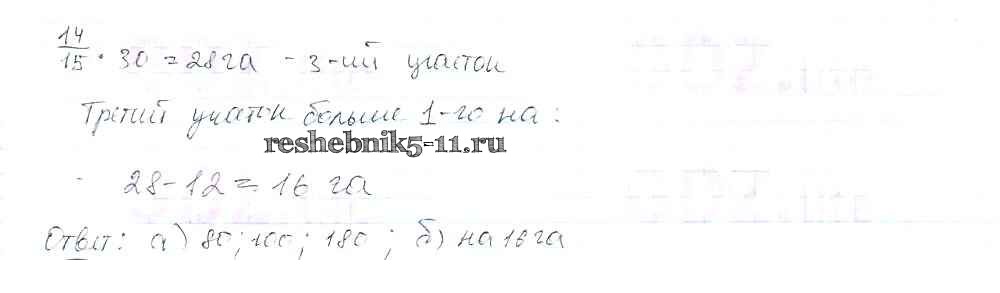 14/15 · 30 = 28 га - 3-ий участок
Третий участок больше 1-го на:
reshebnik5-11.ru
28-12 = 16 га
Ответ: а) 80; 100; 180 ; б) на 16 га